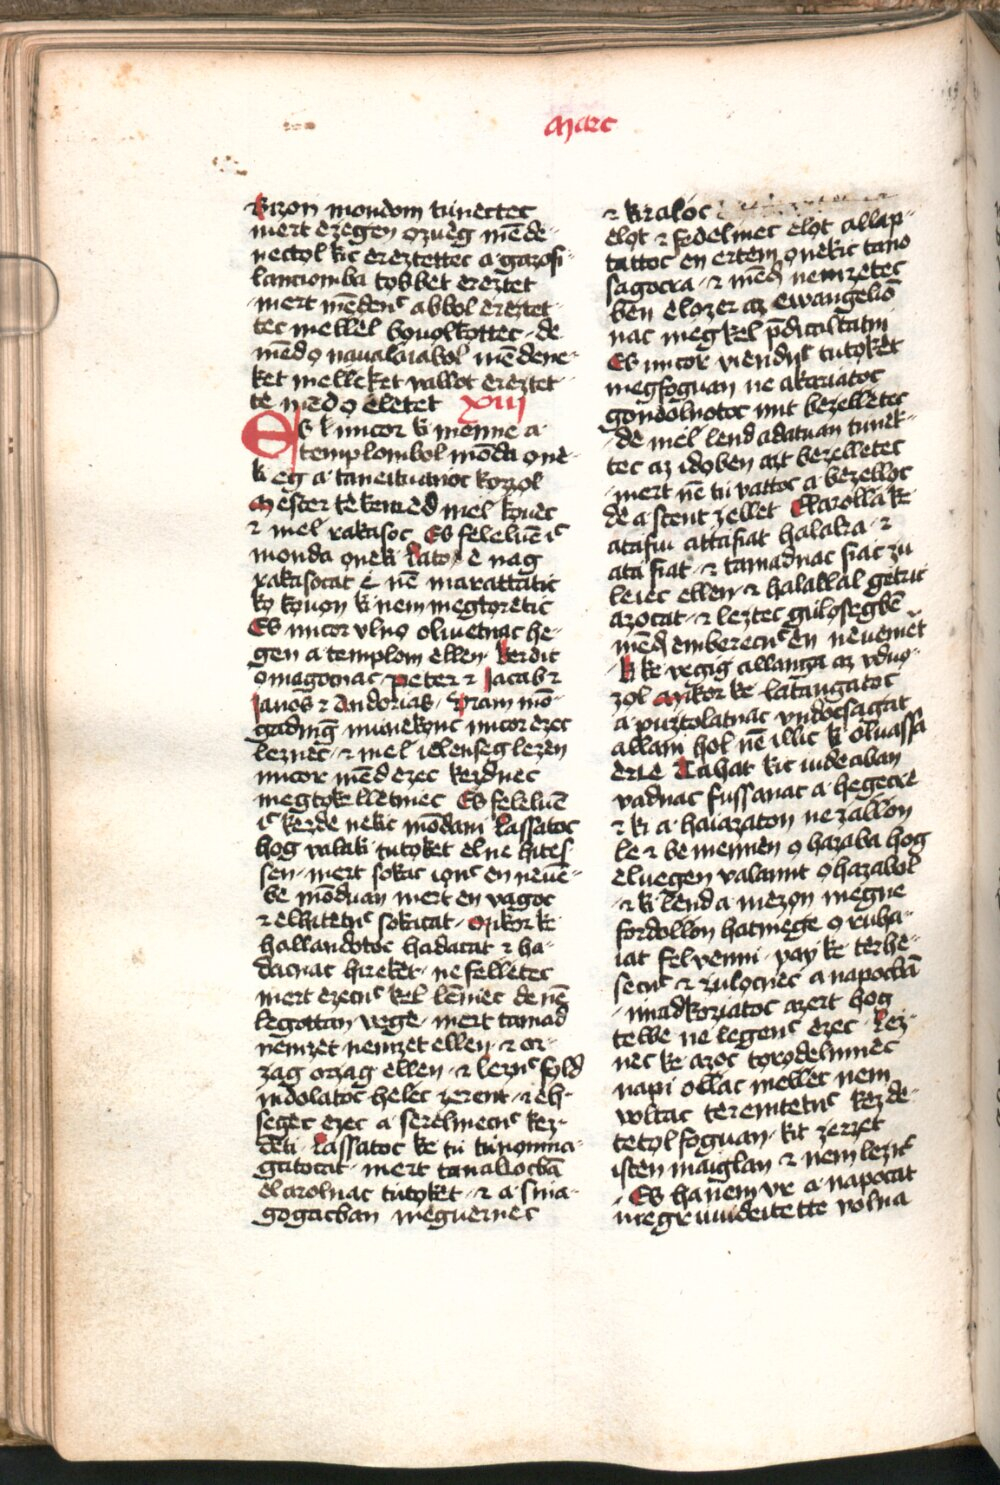 Marc
Bizon mondom túnectec
mert ezegen ozueg mēde-
nectol kic ereztettec a gazofi-
lanciomba tobbet ereztet
mert mēdenc abbol ereztet-
tec mellel bouolkottec · de
mēd o naualaiabol mēdene-
ket melleket vallot ereztet-
te mēd o eletet XIII
Es k micor ki menne a
templombol mōda one-
ki eģ a taneituanoc kozzol
Mester tekenced mel kouec
⁊ mel rakasoc Es feleluē ic
monda oneki Latod e nag
rakasocat e nē marattatic
ko kouon ki nem megtoretic
Es micor vlno olivetnac he-
gen a templom ellen · kerdic
o megocnac peter ⁊ Jacab ⁊
Janos ⁊ Andorias · Iram mō-
gad mīg minekonc micor ezec
leznec · ⁊ mel ielenseg lezen
micor mēd ezec kezdnec
megtokelletniec Es feleluē
ic kezde nekic mōdani Lassatoc
hog valaki tutoket el ne hites-
sen · mert sokac ionc en neuē-
be mōduan mert en vagoc
⁊ elhitetnc sokacat · Mikor ke
hallandotoc hadacat ⁊ ha-
dacnac hireket · ne felletec
mert ezecnc kel lēniec de nē
legottan vege · mert tamad
nemzet nemzet ellen · ⁊ or-
zag orzag ellen · ⁊ leznc fold
indolatoc helec zerent · ⁊ eh-
segec ezec a serelmecnc kez-
deti · Lassatoc ke tú túnonma-
gatocat · mert tanalcocbā
elarolnac tutoket · ⁊ a sina-
gogacban megvernec
⁊ kiraloc
elot ⁊ fedelmec elot allap-
tattoc en ertem onekic tano
sagocra · ⁊ mēd nemzetec
ben elozer az ewangeliō
nac megkel pdicaltatni
Es micor viendnc tutoket
megfoguan ne akariatoc
gondolnotoc mit bezelletec
de mel lend adatuan tunek-
tec az idoben azt bezelletec
mert nē tú vattoc a bezelloc
de a scent zellet Elarolla ke
atafiu attafiat halalra · ⁊
ata fiat · ⁊ tamadnac fiac zú
leiec ellen · ⁊ halallal getric
azocat · ⁊ leztec gulosegbē
mēd emberecnc en neuemērt
ki ke vegig allanga az vduo-
zol Mikor ke latangatoc
a puztolatnac vndocsagat
allani hol nē illic ki oluassa
erče Tahat kic iudeaban
vadnac fussanac a hegecre
⁊ ki a haiazaton ne zallon
le ⁊ be mennen o hazaba hog
eluegen valamit o hazabol
⁊ ki lend a mezon megne
fordollon hatmege o ruha-
iat felvenni · vay ke terhe-
secnc ⁊ zulocnec a napocbā
imadkoziatoc azert hog
telbe ne legenc ezec · Lez-
nec ke azoc torodelmnec
napi ollac mellec nem
voltac teremtetnc kezde-
tetol foguan · kit zerzet
isten maiglan ⁊ nem lezic
Es ha nem vr a napocat
megruuideitette volna